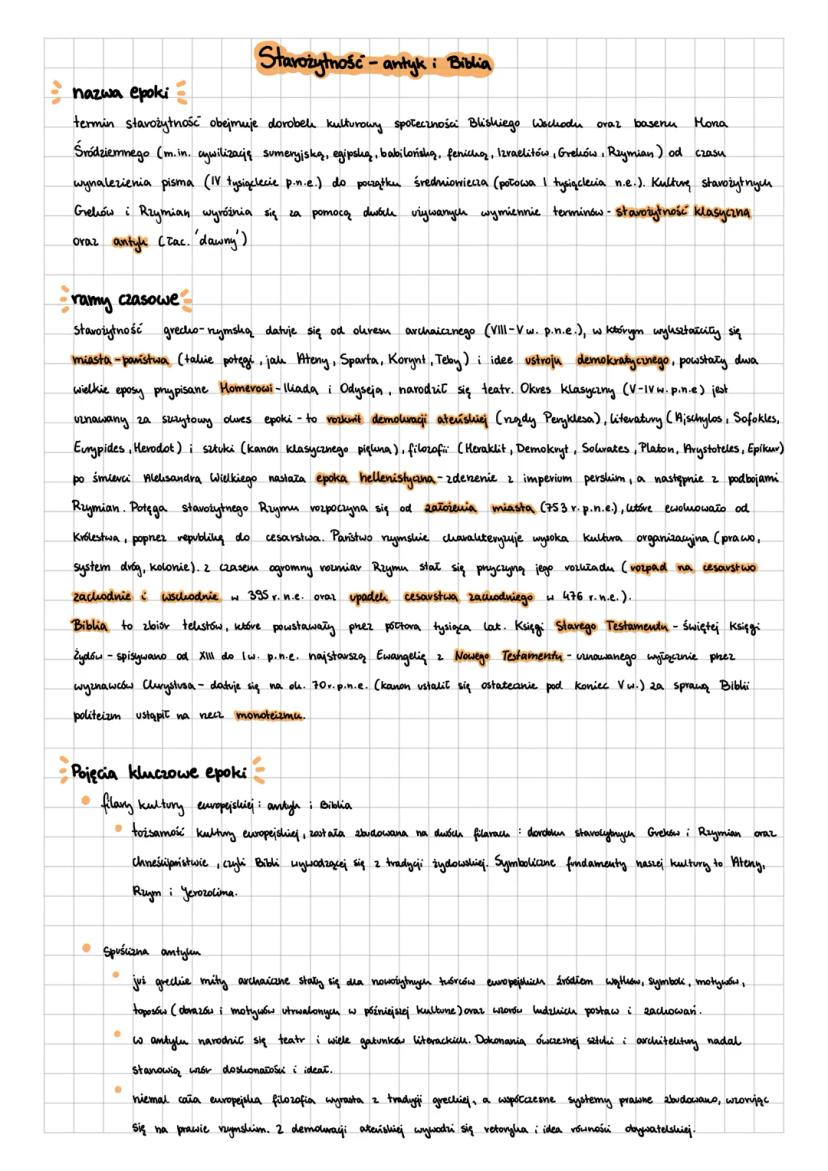 Starożytność - antyk i Biblia
nazwa epoki
termin starożytność obejmuje dorobek kulturowy społeczności Bliskiego Wschodu oraz basenu Morza
Śródziemnego (m.in. cywilizację sumeryjską, egipską, babilońską, fenicką, Izraelitów, Greków, Rzymian) od czasu
wynalezienia pisma (IV tysiąclecie p.n.e.) do początku średniowiecza (połowa I tysiąclecia n.e.). Kulturę starożytnych
Greków i Rzymian wyróżnia się za pomocą dwóch używanych wymiennie terminów - starożytność klasyczna
oraz antyk (łac. 'dawny')
ramy czasowe
Starożytność grecko-rzymską datuje się od okresu archaicznego (VIII-V w. p.n.e.), w którym wykształciły się
miasta-państwa (takie potęgi, jak Ateny, Sparta, Korynt, Teby) i idee ustroju demokratycznego, powstały dwa
wielkie eposy przypisane Homerowi - Iliada i Odyseja, narodził się teatr. Okres klasyczny (V-IV w. p.n.e) jest
uznawany za szczytowy okres epoki - to rozkwit demokracji ateńskiej (rządy Peryklesa), literatury (Ajschylos, Sofokles,
Eurypides, Herodot) i sztuki (kanon klasycznego piękna), filozofii (Heraklit, Demokryt, Sokrates, Platon, Arystoteles, Epikur)
po śmierci Aleksandra Wielkiego nastała epoka hellenistyczna - zderzenie z imperium perskim, a następnie z podbojami
Rzymian. Potęga starożytnego Rzymu rozpoczyna się od założenia miasta (753 r. p.n.e.), które ewoluowało od
królestwa, poprzez republikę do cesarstwa. Państwo rzymskie charakteryzuje wysoka kultura organizacyjna (prawo,
system dróg, kolonie). z czasem ogromny rozmiar Rzymu stał się przyczyną jego rozkładu (rozpad na cesarstwo
zachodnie i wschodnie w 395 r. n.e. oraz upadek cesarstwa zachodniego w 476 r. n.e.).
Biblia to zbiór tekstów, które powstawały przez półtora tysiąca lat. Księgi Starego Testamentu - świętej Księgi
Żydów - spisywano od XIII do I w. p.n.e. najstarszą Ewangelię z Nowego Testamentu - uznawanego wyłącznie przez
wyznawców Chrystusa - datuje się na ok. 70 r. p.n.e. (kanon ustalił się ostatecznie pod koniec V w.) za sprawą Biblii
politeizm ustąpił na rzecz monoteizmu.
Pojęcia kluczowe epoki
filary kultury europejskiej: antyk i Biblia
tożsamość kultury europejskiej, została zbudowana na dwóch filarach: dorobku starożytnych Greków i Rzymian oraz
chrześcijaństwie, czyli Bibli wywodzącej się z tradycji żydowskiej. Symboliczne fundamenty naszej kultury to Ateny,
Rzym i Jerozolima.
Spuścizna antyku
już greckie mity archaiczne stały się dla nowożytnych twórców europejskich źródłem wątków, symboli, motywów,
toposów (obrazów i motywów utrwalonych w późniejszej kulturze) oraz wzorów ludzkich postaw i zachowań.
w antyku narodził się teatr i wiele gatunków literackich. Dokonania ówczesnej sztuki i architektury nadal
stanowią wzór doskonałości i ideał.
niemal cała europejska filozofia wyrasta z tradycji greckiej, a współczesne systemy prawne zbudowano, wzorując
się na prawie rzymskim. Z demokracji ateńskiej wywodzi się retoryka i idea równości obywatelskiej.